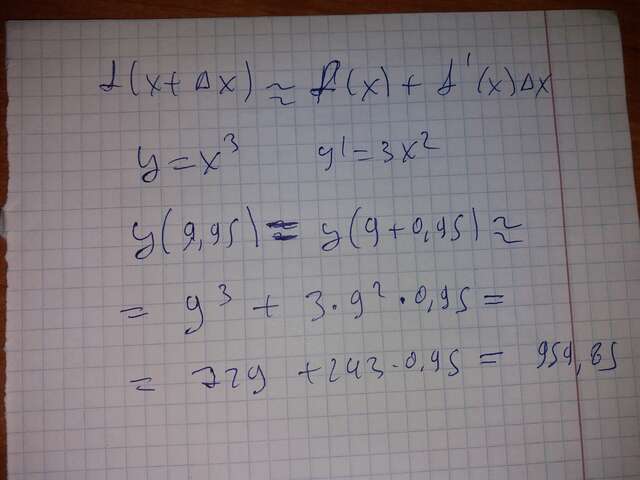 f(x+Δx) ≈ f(x) + f'(x)Δx
y=x³ y'=3x²
y(9,95) = y(9+0,95) ≈
= 9³ + 3·9²·0,95 =
= 729 + 243·0,95 = 959,85